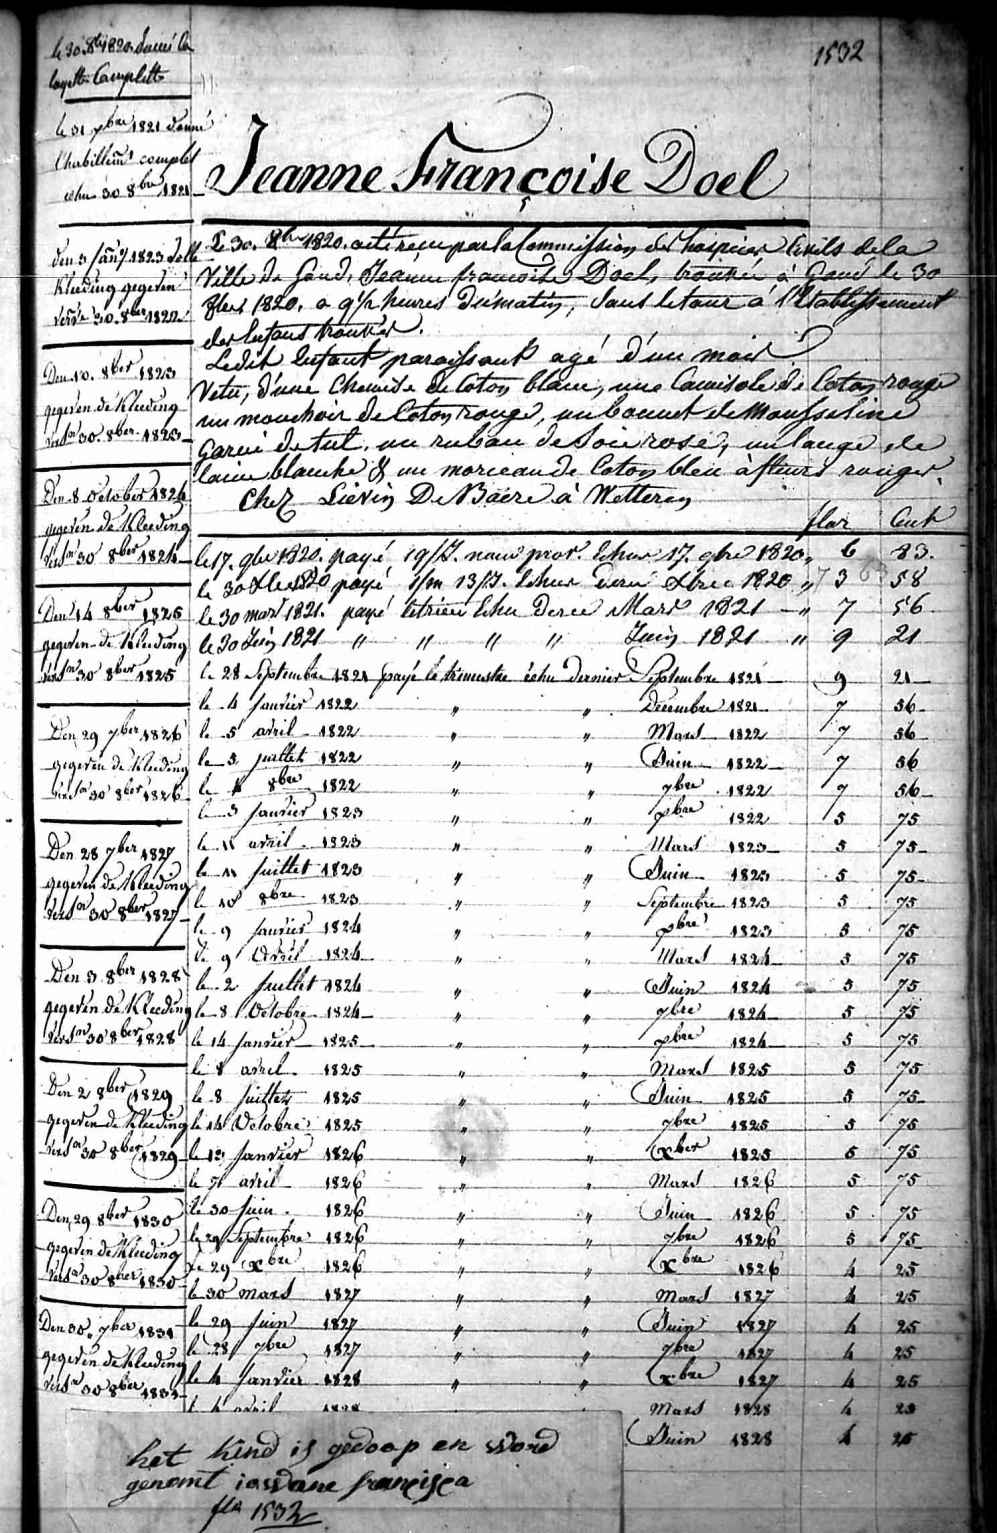 1532
le 30 8bre 1820 donné la
layette Complette
le 31 xbre 1821 donné
l'habillemt complet
échu 30 8bre 1821
Den 3 Jany 1823
Kleeding gegeven
30 8ber 1822
Den 10 8ber 1823
gegeven de Kleeding
30 8ber 1823
Den 8 October 1824
gegeven de Kleeding
30 8ber 1824
Den 14 8ber 1825
gegeven de Kleeding
30 8ber 1825
Den 29 7ber 1826
gegeven de Kleeding
30 8ber 1826
Den 28 7ber 1827
gegeven de Kleeding
30 8ber 1827
Den 3 8ber 1828
gegeven de Kleeding
30 8ber 1828
Den 2 8ber 1829
gegeven de Kleeding
30 8ber 1829
Den 29 8ber 1830
gegeven de Kleeding
30 8ber 1830
Den 30 7ber 1831
gegeven de Kleeding
30 8ber 1831
Jeanne Françoise Doel
Le 30 8bre 1820 acte reçu par la Commission des hospices Civils de la
Ville de Gand, Jeanne françoise Doel, trouvée à Gand le 30
8bre 1820, a 9 1/2 heures du matin, dans le tour à l'Etablissement
des enfans trouvés.
Ledit Enfant paroissant agé d'un mois
Vetu, d'une Chemise de Coton blanc, une Camisole de Coton rouge
un mouchoir de Coton rouge, un bonnet de Mousseline
Garni de tul, un ruban de Soie rose, un lange de
laine blanche & un morceau de Coton bleu à fleurs rouges.
Chez Liévin De Baere à Wetteren
flor Cent
le 17 9bre 1820 payé 19/7 échu 17 9bre 1820 6 83
le 30 Xbre 1820 payé 13/7 échu Xbre 1820 3 58
le 30 mars 1821 payé échu Mars 1821 " 7 56
le 30 Juin 1821 " " " " Juin 1821 " 9 21
le 28 Septembre 1821 payé le trimestre échu dernier Septembre 1821 9 21
le 4 Janvier 1822 " " Decembre 1821 7 56
le 5 avril 1822 " " Mars 1822 7 56
le 5 juillet 1822 " " Juin 1822 7 56
le 8bre 1822 " " 7bre 1822 7 56
le 3 Janvier 1823 " " xbre 1822 5 75
le 11 avril 1823 " " Mars 1823 5 75
le 11 Juillet 1823 " " Juin 1823 5 75
le 10 8bre 1823 " " Septembre 1823 5 75
le 9 Janvier 1824 " " xbre 1823 5 75
le 9 Avril 1824 " " Mars 1824 5 75
le 2 Juillet 1824 " " Juin 1824 5 75
le 8 Octobre 1824 " " 7bre 1824 5 75
le 14 Janvier 1825 " " xbre 1824 5 75
le 8 avril 1825 Mars 1825 5 75
le 8 Juillet 1825 " " Juin 1825 5 75
le 14 Octobre 1825 " " 7bre 1825 5 75
le 13 Janvier 1826 " " xber 1825 5 75
le 7 avril 1826 " " Mars 1826 5 75
le 30 Juin 1826 " " Juin 1826 5 75
le 29 Septembre 1826 " " 7bre 1826 5 75
le 29 xbre 1826 " " xbre 1826 4 25
le 30 mars 1827 " " Mars 1827 4 25
le 29 Juin 1827 " " Juin 1827 4 25
le 28 7bre 1827 " " 7bre 1827 4 25
le 4 Janvier 1828 " " xbre 1827 4 25
le avril 1828 Mars 1828 4 25
Juin 1828 4 25
het kind is gedoop en word
genomt iowane françisça
fla 1532